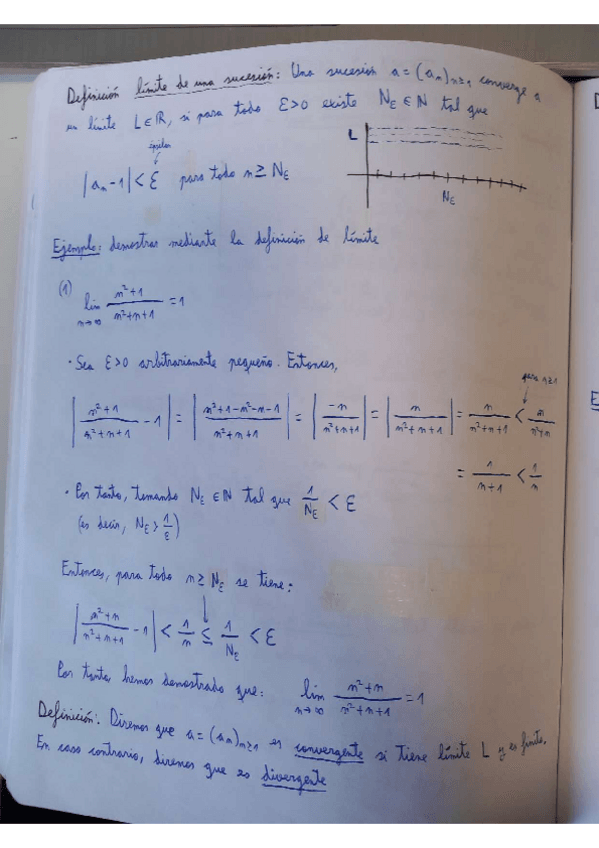 Definición límite de una sucesión: Una sucesión a = (aₙ)ₙ≥₁ converge a
un límite L∈ℝ, si para todo ε>0 existe N_ε ∈ ℕ tal que
épsilon
|aₙ - 1| < ε para todo n ≥ N_ε
L
N_ε
Ejemplo: demostrar mediante la definición de límite
(1) lim n→∞ (n²+1)/(n²+n+1) = 1
· Sea ε>0 arbitrariamente pequeño. Entonces,
para n≥1
|(n²+1)/(n²+n+1) - 1| = |(n²+1-n²-n-1)/(n²+n+1)| = |(-n)/(n²+n+1)| = |n/(n²+n+1)| = n/(n²+n+1) < n/(n²+n)
= 1/(n+1) < 1/n
· Por tanto, tomando N_ε ∈ ℕ tal que 1/N_ε < ε
(es decir, N_ε > 1/ε)
Entonces, para todo n ≥ N_ε se tiene:
|(n²+n)/(n²+n+1) - 1| < 1/n ≤ 1/N_ε < ε
Por tanto hemos demostrado que: lim n→∞ (n²+n)/(n²+n+1) = 1
Definición: Diremos que a = (aₙ)ₙ≥₁ es convergente si tiene límite L y es finito.
En caso contrario, diremos que es divergente